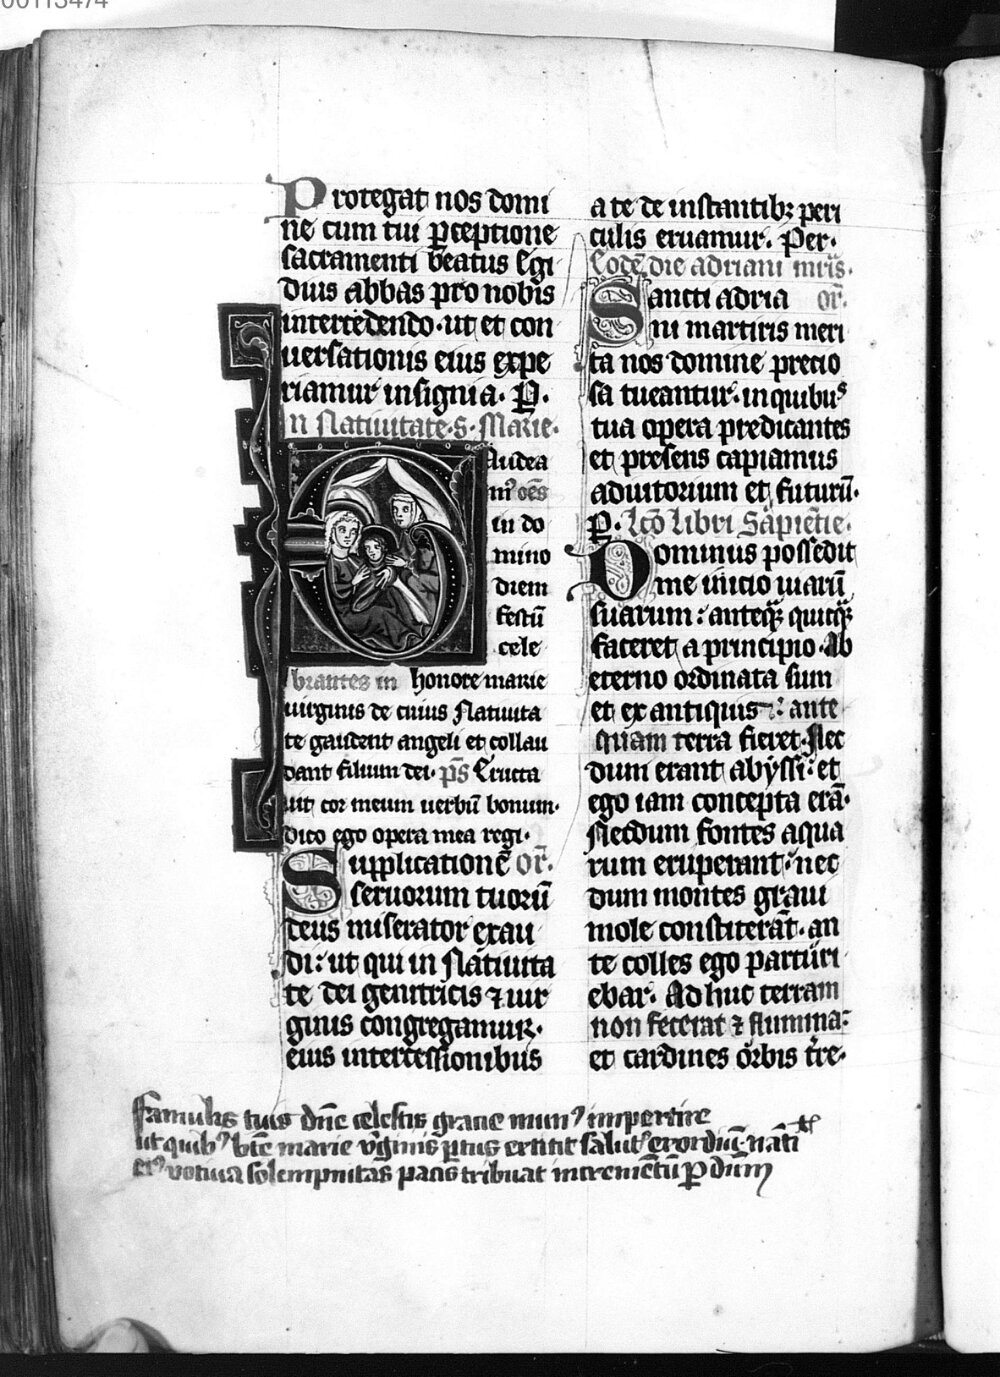 00113474
Protegat nos domi
ne cum tui p̲ceptione
sacramenti beatus Egi
dius abbas pro nobis
intercedendo· ut et con
uersationis eius expe
riamur insignia· P̲·
In Natiuitate· S· Marie·
Gaudea
mꝰ oēs
in do
mino
diem
festū
cele
brantes in honore marie
uirginis de cuius Natiuita
te gaudent angeli et collau
dant filium dei· p̄s Eructa
uit cor meum uerbū bonum·
dico ego opera mea regi·
Supplicationē or̄·
seruorum tuorū
deus miserator exau
di: ut qui in Natiuita
te dei genitricis ⁊ uir
ginis congregamur·
eius intercessionibus
a te de instantibꝫ peri
culis eruamur· Per·
Eodē die adriani mr̄is·
Sancti adria or̄·
ni martiris meri
ta nos domine precio
sa tueantur· in quibuˢ
tua opera predicantes
et presens capiamus
adiutorium et futurū·
P̲· Lc̄o Libri Sapiētie·
Dominus possedit
me inicio uiarū
suarum: anteqꝫ quicqꝫ
faceret a principio· Ab
eterno ordinata sum
et ex antiquis: ante
quam terra fieret· Nec
dum erant abyssi: et
ego iam concepta erā·
Necdum fontes aqua
rum eruperant: nec
dum montes graui
mole constiterāt· an
te colles ego parturi
ebar· Ad huc terram
non fecerat ⁊ flumina:
et cardines orbis t̄re·
Famulis tuis dn̄e celestis gratie munꝰ impertire
ut quibꝰ bt̄e marie v̓ginis p̲tus extitit salutꝭ exordiū· natiuita
eiꝰ votiua solempnitas pacis tribuat incremētū P̲ dn̄m